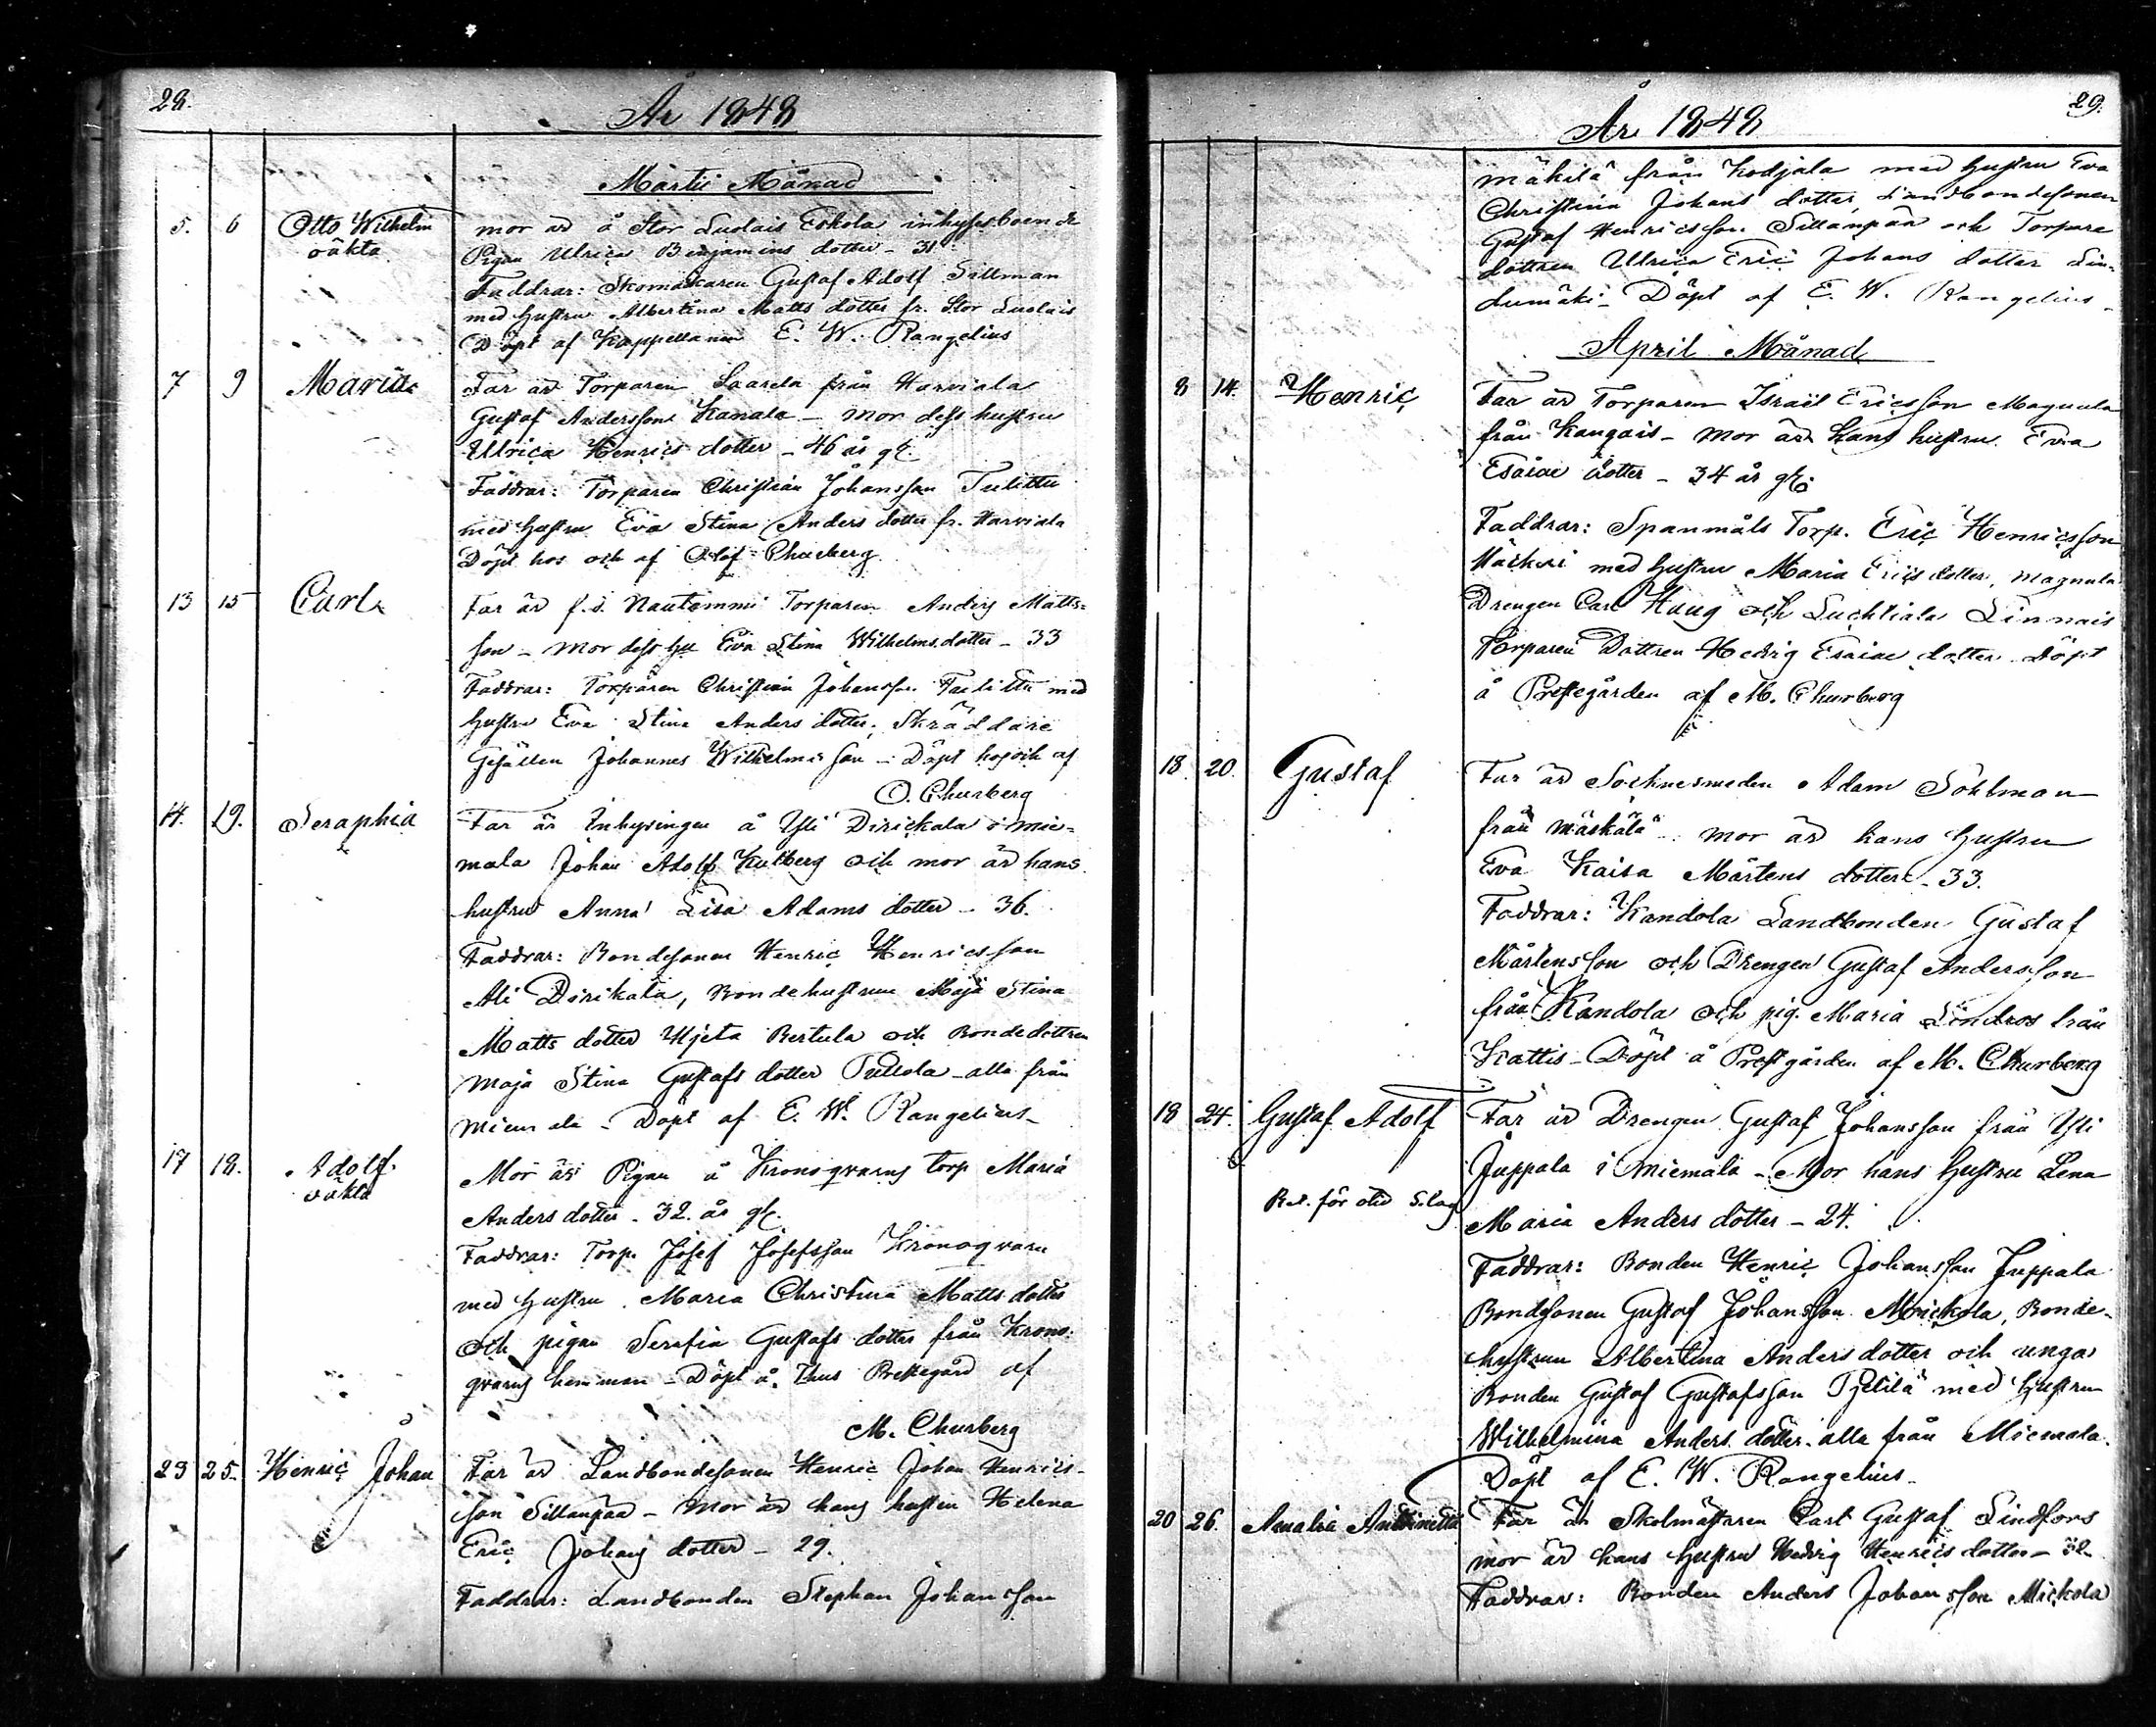 28.
År 1848
Martii Månad
5. 6 Otto Wilhelm mor är å Stor Luolais Eskola inhysesboende
oäkta Pigan Ulrica Benjamins dotter - 31
Faddrar: Skomakaren Gustaf Adolf Sillman
med hustru Albertina Matts dotter fr. Stor Luolais
Döpt af Kappellanen E. W. Rangelius
7 9 Maria Far är Torparen Saarela från Harviala
Gustaf Andersson Kanala - mor dess hustru
Ulrica Henrics dotter - 46 år gl.
Faddrar: Torparen Christian Johansson Tulittu
med hustru Eva Stina Anders dotter fr. Harviala
Döpt hos och af Olof Churberg
13 15 Carl Far är f.d. Torparen Anders Matts-
son - mor dess hu Eva Stina Wilhelms dotter - 33
Faddrar: Torparen Christian Johansson Tulittu med
hustru Eva Stina Anders dotter, Skräddare
Gesällen Johannes Wilhelmsson - Döpt hos och af
O. Churberg
14. 19. Seraphia Far är Inhysingen å Yli Dirickala i Mie-
mala Johan Adolf Kulberg och mor är hans
hustru Anna Lisa Adams dotter - 36.
Faddrar: Bondesonen Henric Henricsson
Ali Dirikala, Bondehustrun Maja Stina
Matts dotter Bertula och Bondedottren
Maja Stina Gustafs dotter - alla från
Miemala - Döpt af E. W. Rangelius -
17 18. Adolf Mor är Pigan å Kronoqvarns torp Maria
oäkta Anders dotter - 32. år gl.
Faddrar: Torp. Josef Josefsson Kronoqvarn
med hustru Maria Christina Matts dotter
och pigan Serafia Gustafs dotter från Krono-
qvarns hemman - Döpt å Prestegård af
M. Churberg
23 25. Henric Johan Far är Landbondesonen Henric Johan Henrics-
son Sillanpää - mor är hans hustru Helena
Eric Johans dotter - 29.
Faddrar: Landbonden Stephan Johansson
29.
År 1848
Mäkilä från Kodjala med hustru Eva
Christina Johans dotter, Landbondesonen
Gustaf Henricsson Sillanpää och Torpare
dottren Ulrica Eric Johans dotter Lin-
dumäki - Döpt af E. W. Rangelius -
April Månad
8 14. Henric Far är Torparen Israel Ericsson Magnula
från Kangais - mor är hans hustru Eva
Esaiae dotter - 34 år gl.
Faddrar: Spanmåls Torp. Eric Henricsson
med hustru Maria Erics dotter, Magnula
Drengen Carl Haug och Luchtiala Linnais
Torparen Dottren Hedvig Esaiae dotter. Döpt
å Prestegården af M. Churberg
18. 20. Gustaf Far är Socknesmeden Adam Sohlman
från Mäskälä. mor är hans hustru
Eva Kaisa Mårtens dotter - 33.
Faddrar: Kandola Landbonden Gustaf
Mårtensson och Drengen Gustaf Andersson
från Kandola och pig. Maria Lindros från
Kattis - Döpt å Prestgården af M. Churberg
18 24. Gustaf Adolf Far är Drengen Gustaf Johansson från Yli
Juppala i Miemala - Mor hans hustru Lena
Maria Anders dotter - 24.
Faddrar: Bonden Henric Johansson Juppala
Bondsonen Gustaf Johansson Mickola, Bonde-
hustrun Albertina Anders dotter och unga
Bonden Gustaf Gustafsson med hustru
Wilhelmina Anders dotter. alla från Miemala.
Döpt af E. W. Rangelius -
20 26. Amalia Antoinetta Far är Skolmästaren Carl Gustaf Lindfors
mor är hans hustru Hedvig Henrics dotter - 32
Faddrar: Bonden Anders Johansson Mickola